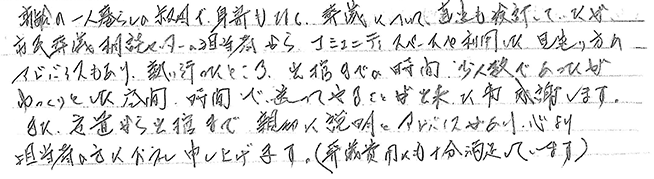 高齢の一人暮らしの叔母で、身寄もなく、葬儀について、直送も検討していたが
市民葬儀相談センターの担当者から コミュニティスペースを利用した見送り方の
アドバイスもあり、執り行ったところ、出棺までの時間、少人数であったが
ゆっくりとした空間、時間で送ってやることが出来た事 感謝します。
また、安置から出棺まで 親切な説明とアドバイスがあり、心より
担当者の方にお礼申し上げます。(葬儀費用にも十分満足しています)